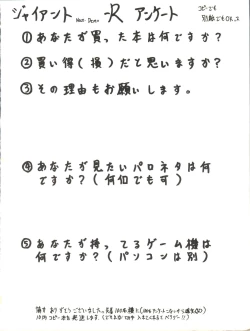 ジャイアント -R アンケート
コピーでも
別紙でもOK.ス
① あなたが買った本は何ですか?
② 買い得(損)だと思いますか?
③ その理由もお願いします。
④ あなたが見たいパロネタは何
ですか?(何個でも可)
⑤ あなたが持ってるゲーム機は
何ですか?(パソコンは別)